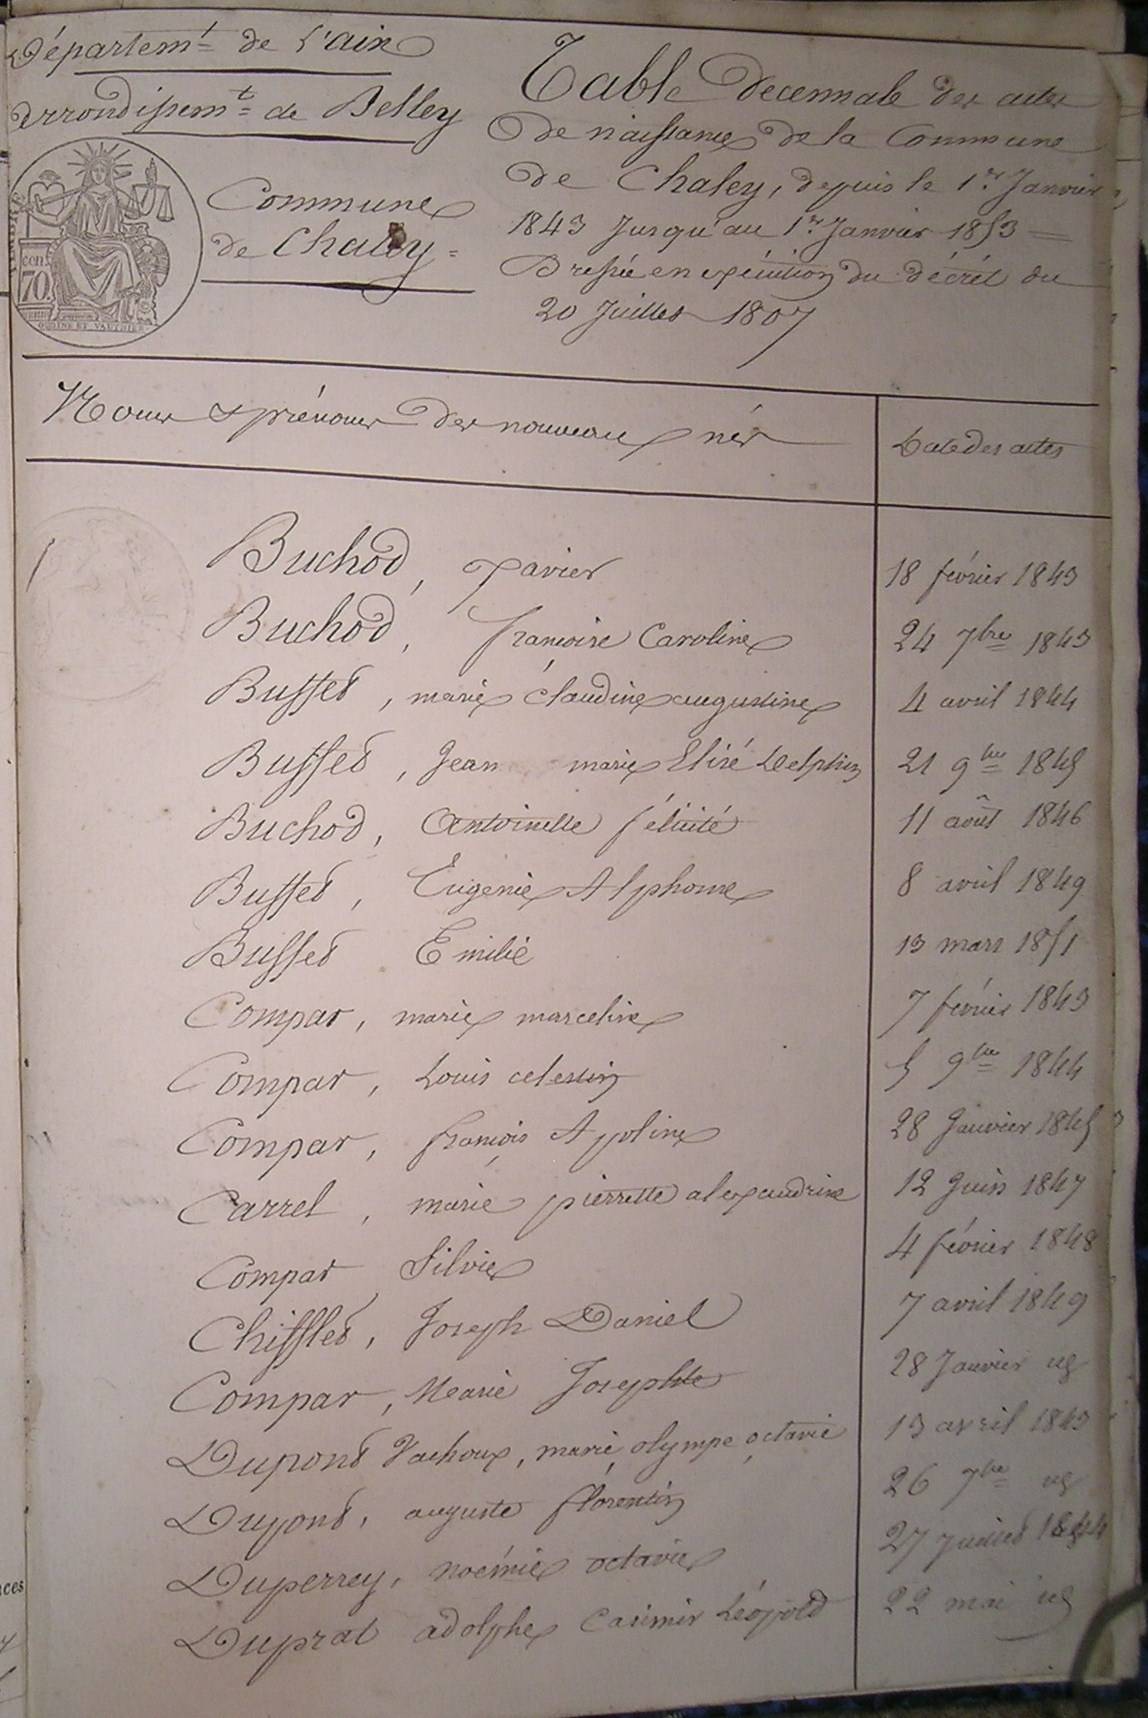 Départem.t de l'ain
Arrondissem.t de Belley
Commune
de Chaley =
TIMBRE
cen.
70
OUDINE ET VAUTHIER
Table Decennale des actes
de naissance de la Commune
de Chaley, depuis le 1.er Janvier
1843 Jusqu'au 1.er Janvier 1853 =
Dressée en exécution du décret du
20 Juillet 1807
Noms & prénoms des nouveau nés
Date des actes
Buchod, Xavier 18 février 1843
Buchod, francoise Caroline 24 7bre 1843
Buffet, marie claudine augustine 4 avril 1844
Buffet, Jean marie Elisé Delphin 21 9bre 1845
Buchod, Antoinette félicité 11 août 1846
Buffet, Eugenie Alphonse 8 avril 1849
Buffet Emilie 13 mars 1851
Compar, marie marceline 7 février 1843
Compar, Louis celestin 5 9bre 1844
Compar, françois Apoline 28 Janvier 1845
Carrel, marie pierrette alexandrine 12 Juin 1847
Compar, Silvie 4 février 1848
Chifflet, Joseph Daniel 7 avril 1849
Compar, Marie Josephte 28 Janvier
Dupont Vachoux, marie, olympe, octavie 13 avril 1843
Dupont, auguste florentin 26 7bre
Duperrey, noémie octavie 27 Juillet 1844
Duprat adolphe Casimir Léopold 22 mai